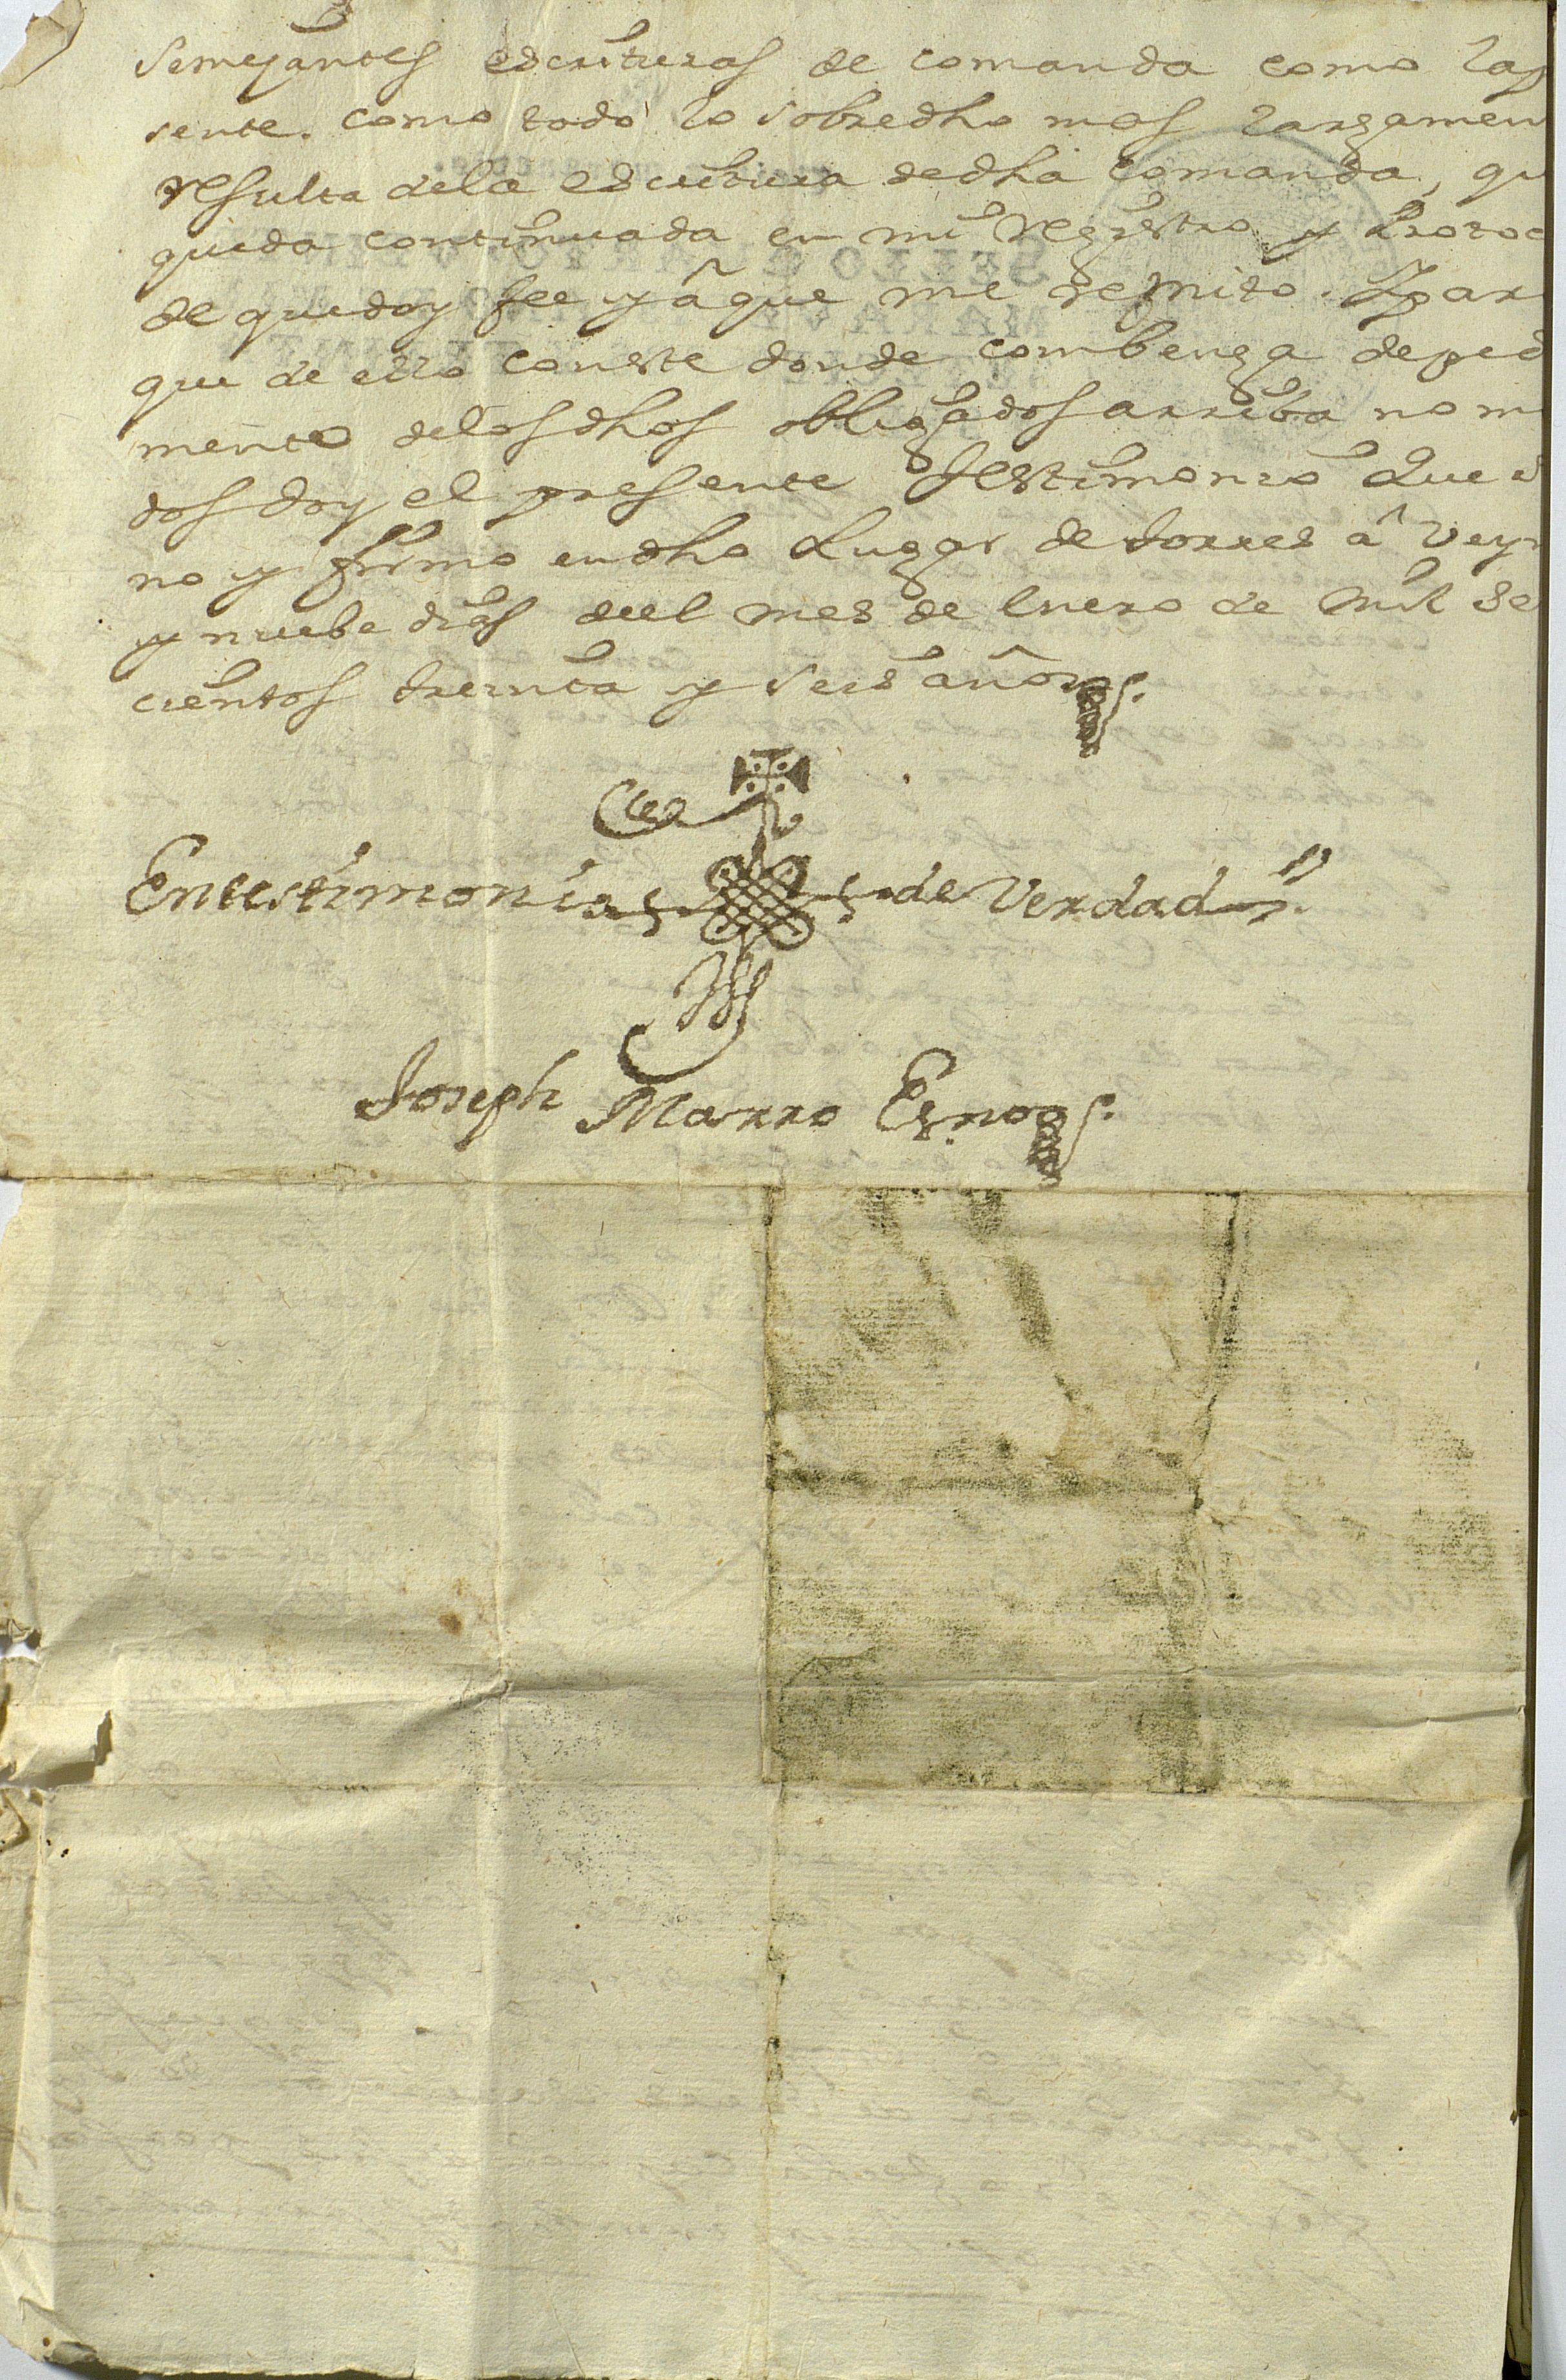 Semejantes escrituras de comanda como lap
sente. como todo lo sobredho mas largamen
resulta dela escritura dedha Comanda, qu
queda continuada en mi Registro y Protoc
de quedoy fee y â que me remito. Y par
que de ello conste donde combenga deped
mento delosdhos obligados arriba nom
dos doy el presente Testimonio Que s
no y firmo endho Lugar de Torres â Vey
y nuebe dias del mes de Enero de Mil Se
cientos treinta y seis años
Entestimonio de Verdad
Joseph Marro Esno